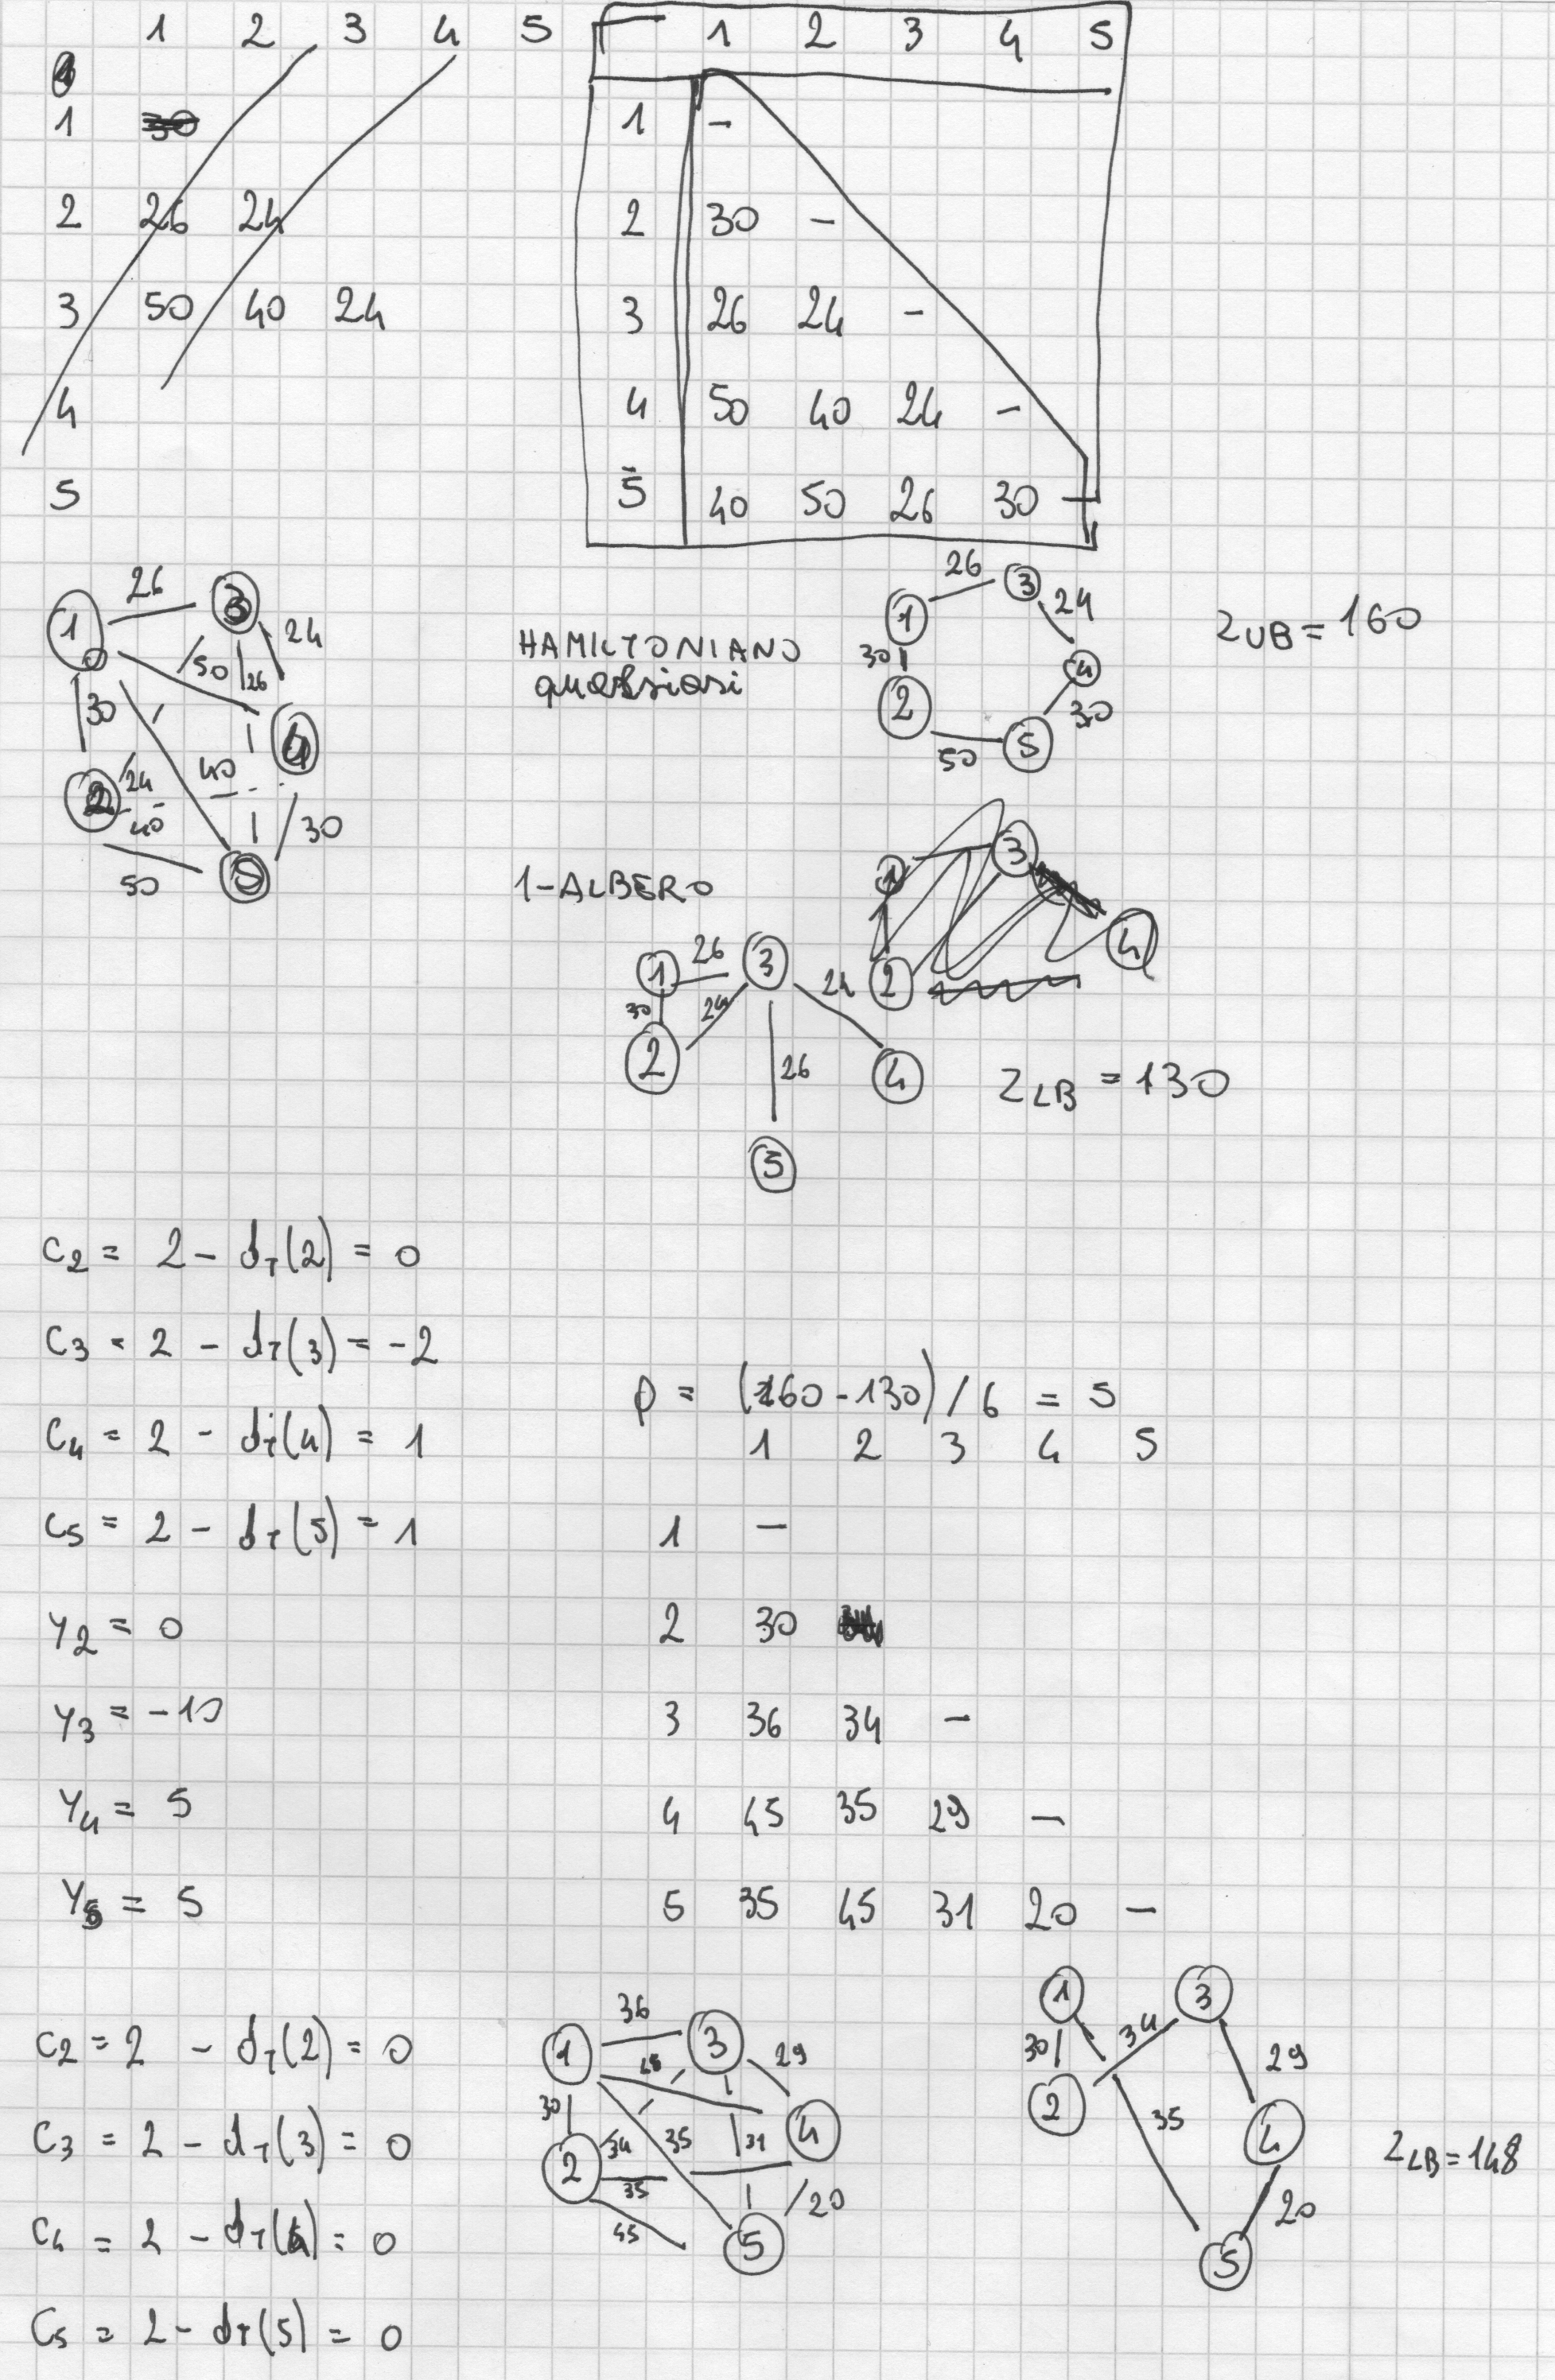 1 2 3 4 5
1
2 26 24
3 50 40 24
4
5
1 2 3 4 5
1 -
2 30 -
3 26 24 -
4 50 40 24 -
5 40 50 26 30 -
1 26 3
50 26 24
30
2 24 40 4
40 30
50 5
HAMILTONIANO
qualsiasi
1 26 3
24
30 4
2 30
50 5
ZUB = 160
1-ALBERO
1 3
2 4
1 26 3
30 24 24
2 26 4
5
ZLB = 130
C2 = 2 - dT(2) = 0
C3 = 2 - dT(3) = -2
C4 = 2 - dT(4) = 1
C5 = 2 - dT(5) = 1
Y2 = 0
Y3 = -10
Y4 = 5
Y5 = 5
ρ = (160 - 130) / 6 = 5
1 2 3 4 5
1 -
2 30
3 36 34 -
4 45 35 29 -
5 35 45 31 20 -
C2 = 2 - dT(2) = 0
C3 = 2 - dT(3) = 0
C4 = 2 - dT(4) = 0
C5 = 2 - dT(5) = 0
1 36 3
45 29
30 34 35 31 4
2 35
45 20
5
1 3
30 34 29
2 35 4
20
5
ZLB = 148